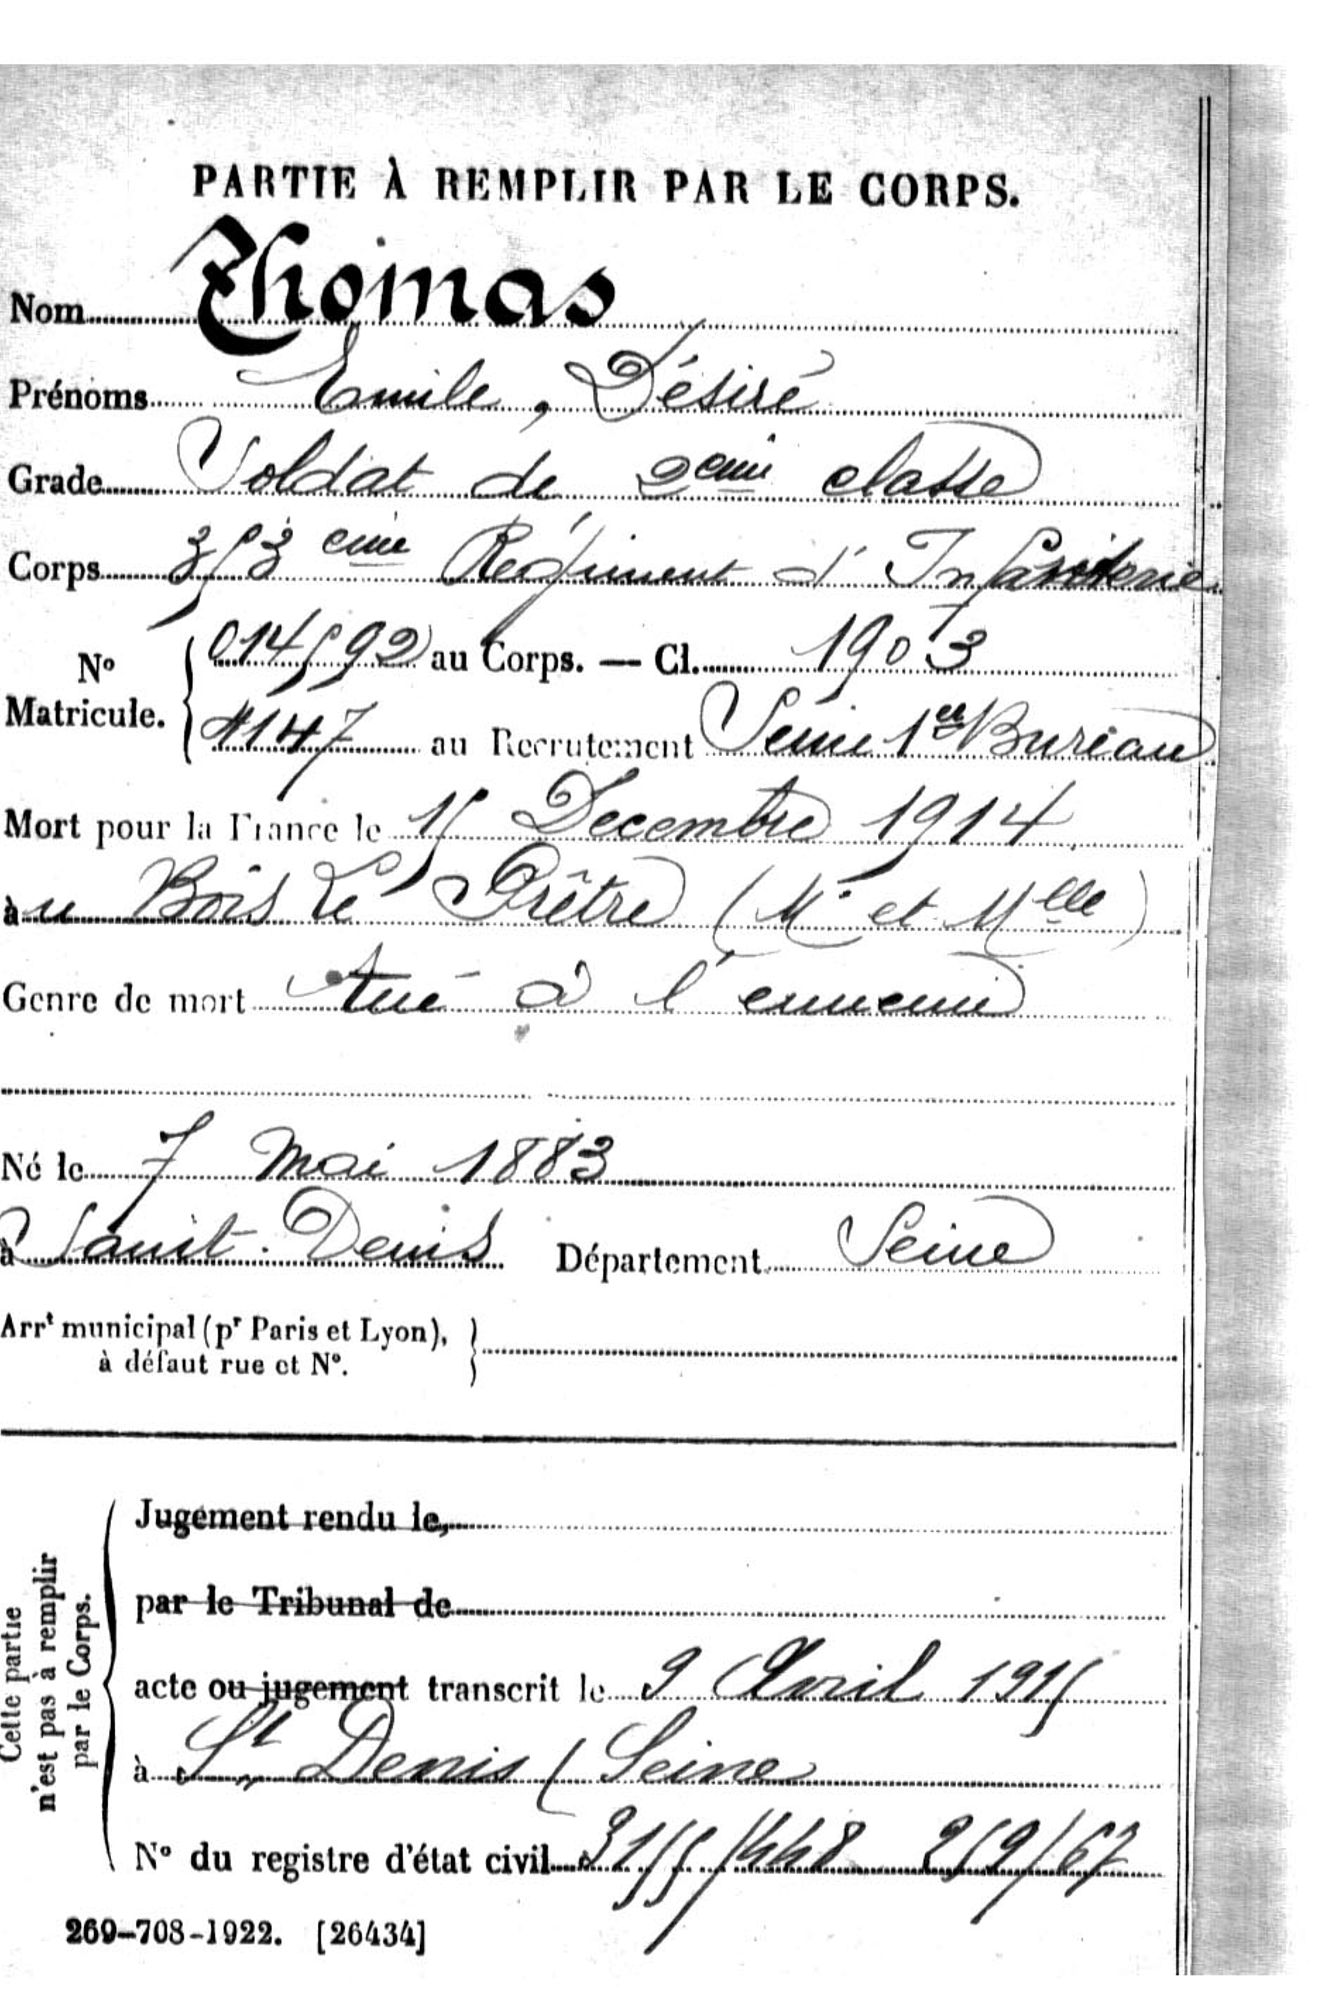 PARTIE À REMPLIR PAR LE CORPS.
Nom Thomas
Prénoms Emile, Désiré
Grade Soldat de 2eme classe
Corps 353 eme Régiment d'Infanterie
No Matricule. 014592 au Corps. — Cl. 1903
4147 au Recrutement Seine 1er Bureau
Mort pour la France le 15 Décembre 1914
au Bois Le Prêtre (Mhe et Mlle)
Genre de mort tué à l'ennemi
Né le 7 Mai 1883
à Saint-Denis Département Seine
Arrt municipal (pr Paris et Lyon),
à défaut rue et No.
Cette partie
n'est pas à remplir
par le Corps.
Jugement rendu le,
par le Tribunal de
acte ou jugement transcrit le 9 Avril 1915
à St Denis (Seine
No du registre d'état civil 259/67
269-708-1922. [26434]